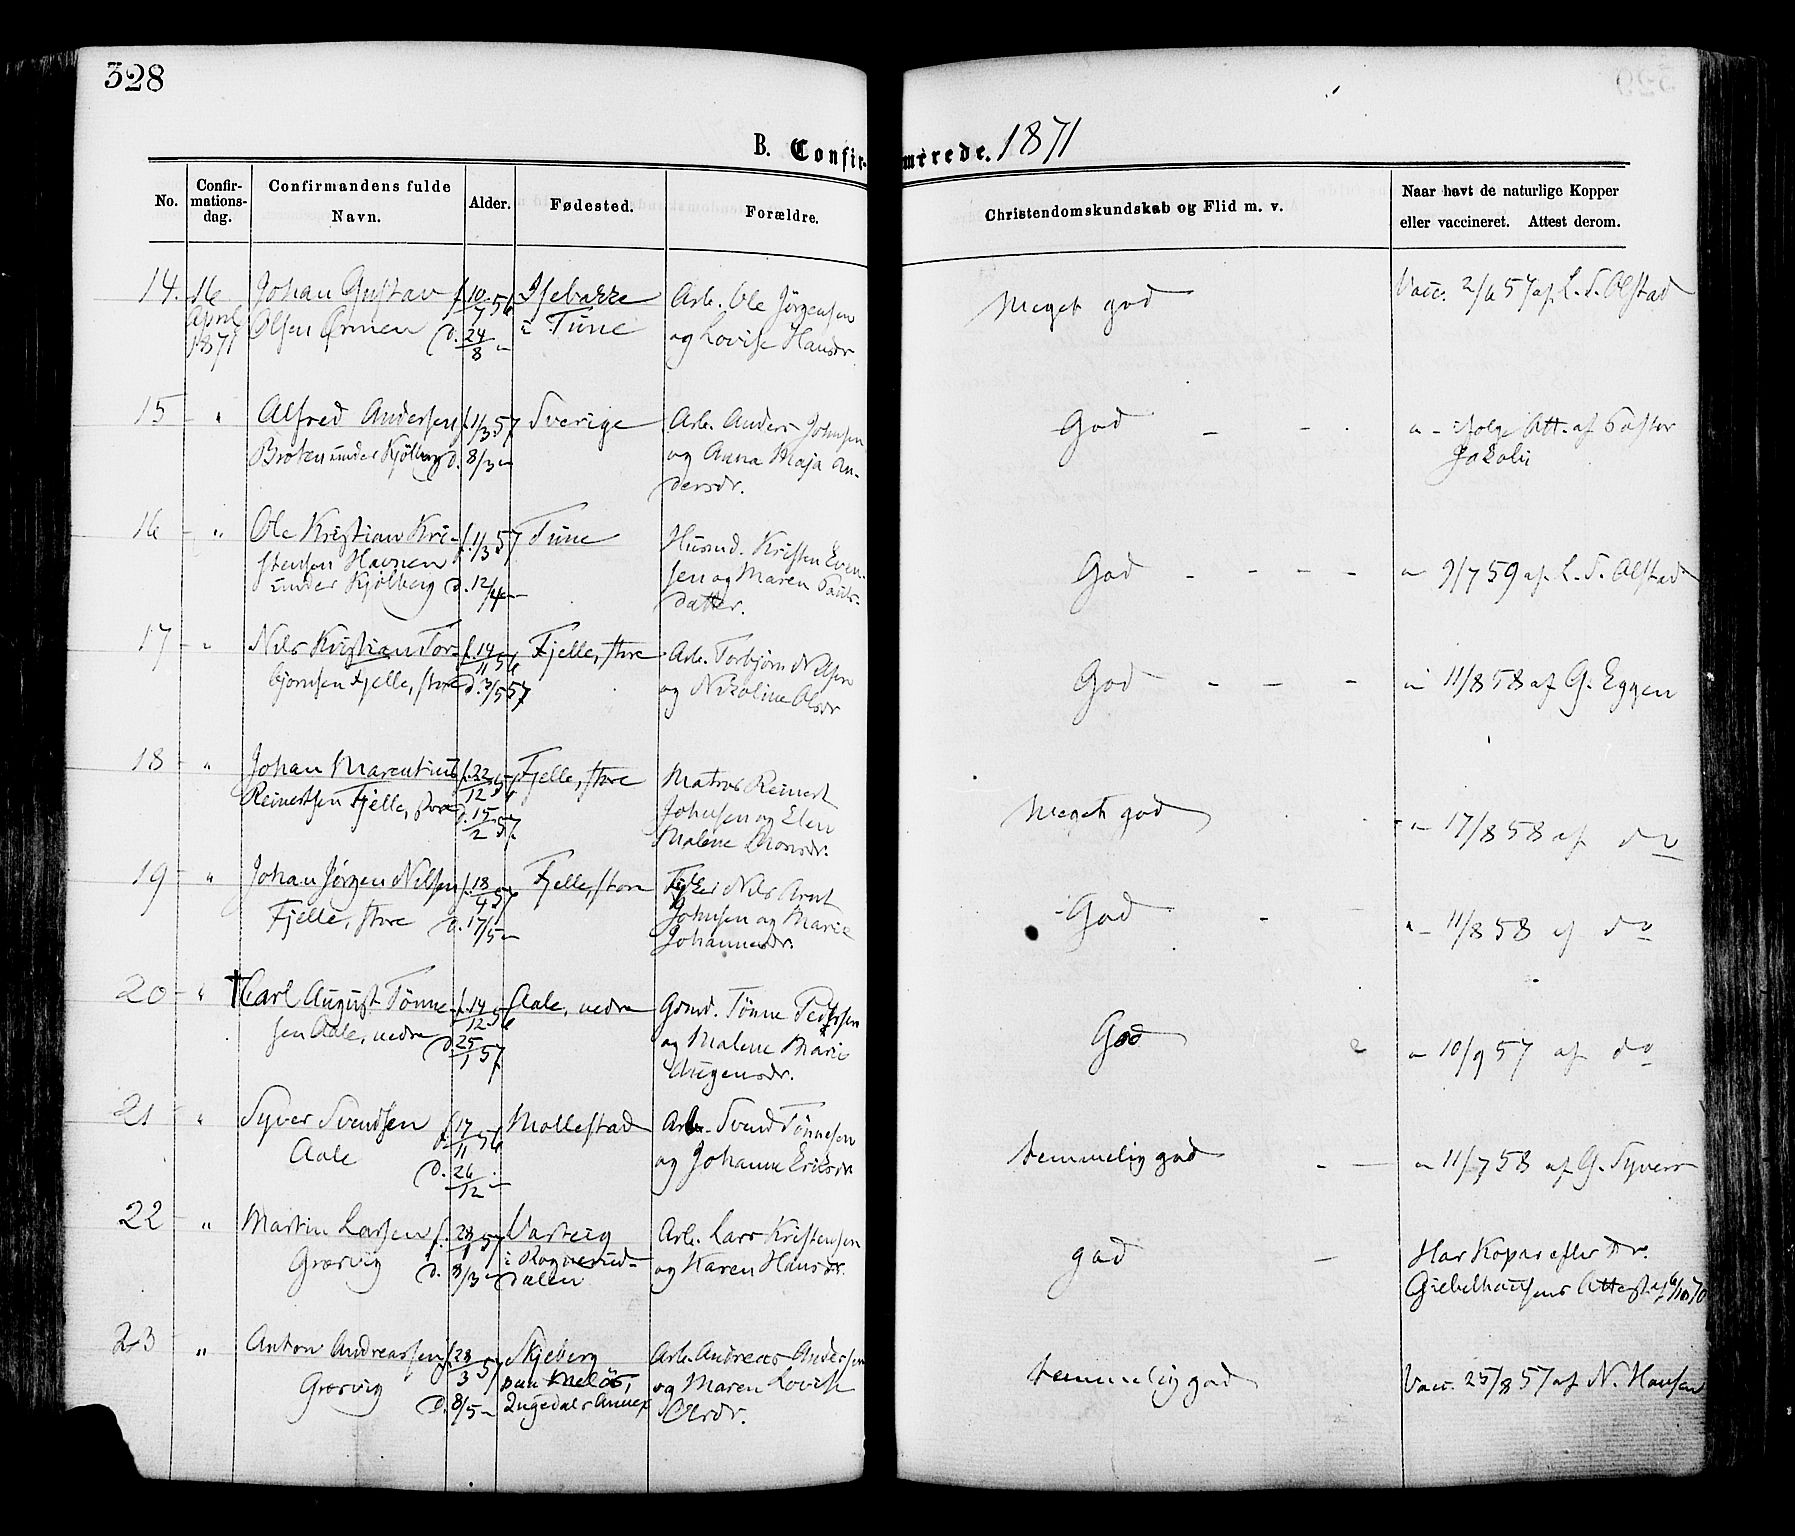 328
B. Confirmerede. 1871
No.
Confirmationsdag.
Confirmandens fulde Navn.
Alder.
Fødested.
Forældre.
Christendomskundskab og Flid m. v.
Naar havt de naturlige Kopper
eller vaccineret. Attest derom.
14. 16 April 1871
Johan Gustav
Olsen Ørmen
f. 10/7 56
d. 24/8 "
Isebakke
i Tune
Arb. Ole Jørgensen
og Lovise Hansdr
Meget god
Vacc. 2/6 57 af L. S. Olstad
15 "
Alfred Andersen
Bråten under Kjølberg
f. 1/3 57
d. 8/3 "
Sverige
Arb. Anders Johnsen
og Anna Maja An-
dersdr.
God
" - ifølge Att. af Pastor
Jakobi
16 "
Ole Kristian Kri-
stensen Havnen
under Kjølberg
f. 11/3 57
d. 12/4 "
Tune
Husmd. Kristen Even-
sen og Maren Pauls-
datter.
God
" 9/7 59 af L. S. Olstad
17 "
Nils Kristian Tor-
bjørnsen Fjelle, store
f. 14/11 56
d. 3/5 57
Fjelle, store
Arb. Torbjørn Nilsen
og Nikoline Olsdr
God
" 11/8 58 af G. Eggen
18 "
Johan Marentius
Reinertsen Fjelle, store
f. 22/12 56
d. 15/2 57
Fjelle, store
Matros Reinert
Johnsen og Elen
Malene
Meget god
" 17/8 58 af do
19 "
Johan Jørgen Nilsen
Fjelle, store
f. 18/4 57
d. 17/5 "
Fjelle, store
Fisker Nils Arnt
Johnsen og Marie
Johannesdr.
God
" 11/8 58 af do
20 "
† Carl August Tønne-
sen Aale, nedre
f. 14/12 56
d. 25/1 57
Aale, nedre
Grmd. Tønne Pedersen
og Malene Marie
Augensdr.
God
" 10/9 57 af do
21 "
Syver Svendsen
Aale
f. 17/11 56
d. 26/12 "
Mollestad
Arb. Svend Tønnesen
og Johanne Eriksdr
temmelig god
" 11/7 58 af G. Syvers
22 "
Martin Larsen
Græsvig
f. 28/1 57
d. 8/3 "
Varteig
i Rognerud-
dalen
Arb. Lars Kristensen
og Karen Hansdr.
god
Har Kopar efter Dr.
Giebelhausens Attest af 6/10 70
23 "
Anton Andreassen
Græsvig
f. 28/3 57
d. 8/5 "
Skjeberg
paa Meløs,
Ingedals Annex
Arb. Andreas Andersen
og Maren Lovise
Olsdr.
temmelig god
Vacc. 25/8 57 af N. Hansen